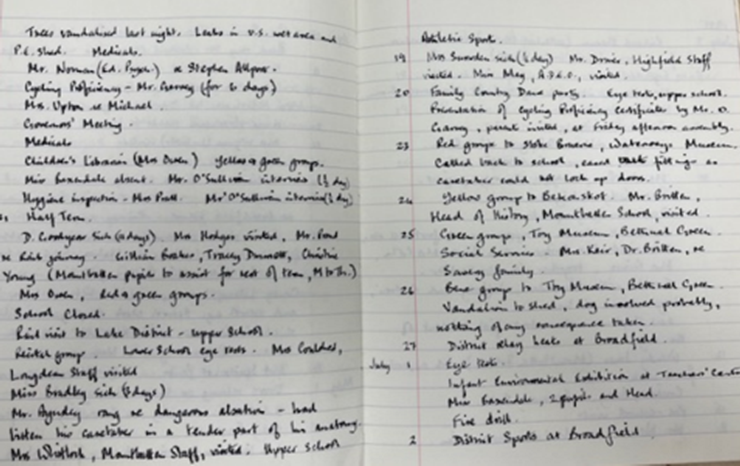 Trees vandalised last night. Leaks in U.S. wet area and
P.E. shed. Medicals.
Mr. Norman (Ed. Psych.) re Stephen
Cycling Proficiency - Mr. (for 6 days)
Mrs. Upton re Michael.
Governors' Meeting.
Medicals
Children's Librarian (Mrs Owen) Yellow & green groups.
Miss absent. Mr. O'Sullivan interview (½ day)
Hygiene inspection - Mrs Pratt. Mr O'Sullivan interview (½ day)
Half Term.
D. Goodyear sick (days) Mrs Hodges visited, Mr. Bond
re Reid journey. Gillian, Tracey, Christine
Young (Mountbatten pupils to assist for rest of term, M to Th.)
Mrs Owen, Red & green groups.
School Closed.
Reid visit to Lake District - upper school.
Recital group. Lower School eye tests. Mrs
Longdean Staff visited
Miss Bradley sick (days)
Mr. rang re dangerous alsatian - had
bitten his caretaker in a tender part of his anatomy.
Mrs Whitlock, Mountbatten Staff, visited. Upper School
Athletic Sports.
19 Mrs sick (½ day) Mr. Highfield Staff
visited. Miss May, A.D.E.O., visited.
20 Family Country Dance party. Eye tests, upper school.
Presentation of Cycling Proficiency Certificates by Mr. D.
parents invited, at Friday afternoon assembly.
23 Red groups to Stoke Bruerne, Waterways Museum.
Called back to school, fittings as
caretaker could not lock up doors.
24 Yellow groups to Bekonscot. Mr. Britten,
Head of History, Mountbatten School, visited.
25 Green groups, Toy Museum, Bethnal Green.
Social Services - Mrs Keir, Dr. Britten, re
family.
26 groups to Toy Museum, Bethnal Green.
Vandalism to shed, dog involved probably,
nothing of any consequence taken.
27 District relay heats at Broadfield.
July 1 Eye tests.
Infant Environmental Exhibition at Teachers' Centre
Miss 2 pupils and Head.
Fire drill.
2 District Sports at Broadfield